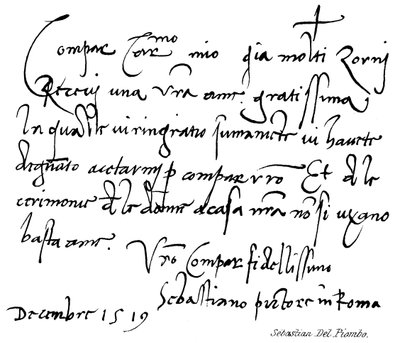 Compar Carmo mio gia molti Zorni
Receui una vra ame. gratissima
In qual ue vi ringratio sumamēte vi havete
degnato acetarmi p compar vro Et de le
cerimonie de le done a casa nra nō si uxano
basta ame. Vro Compar fidellissimo
Sebastiano pictore in Roma
Decembre 1519
Sebastian Del Piombo.